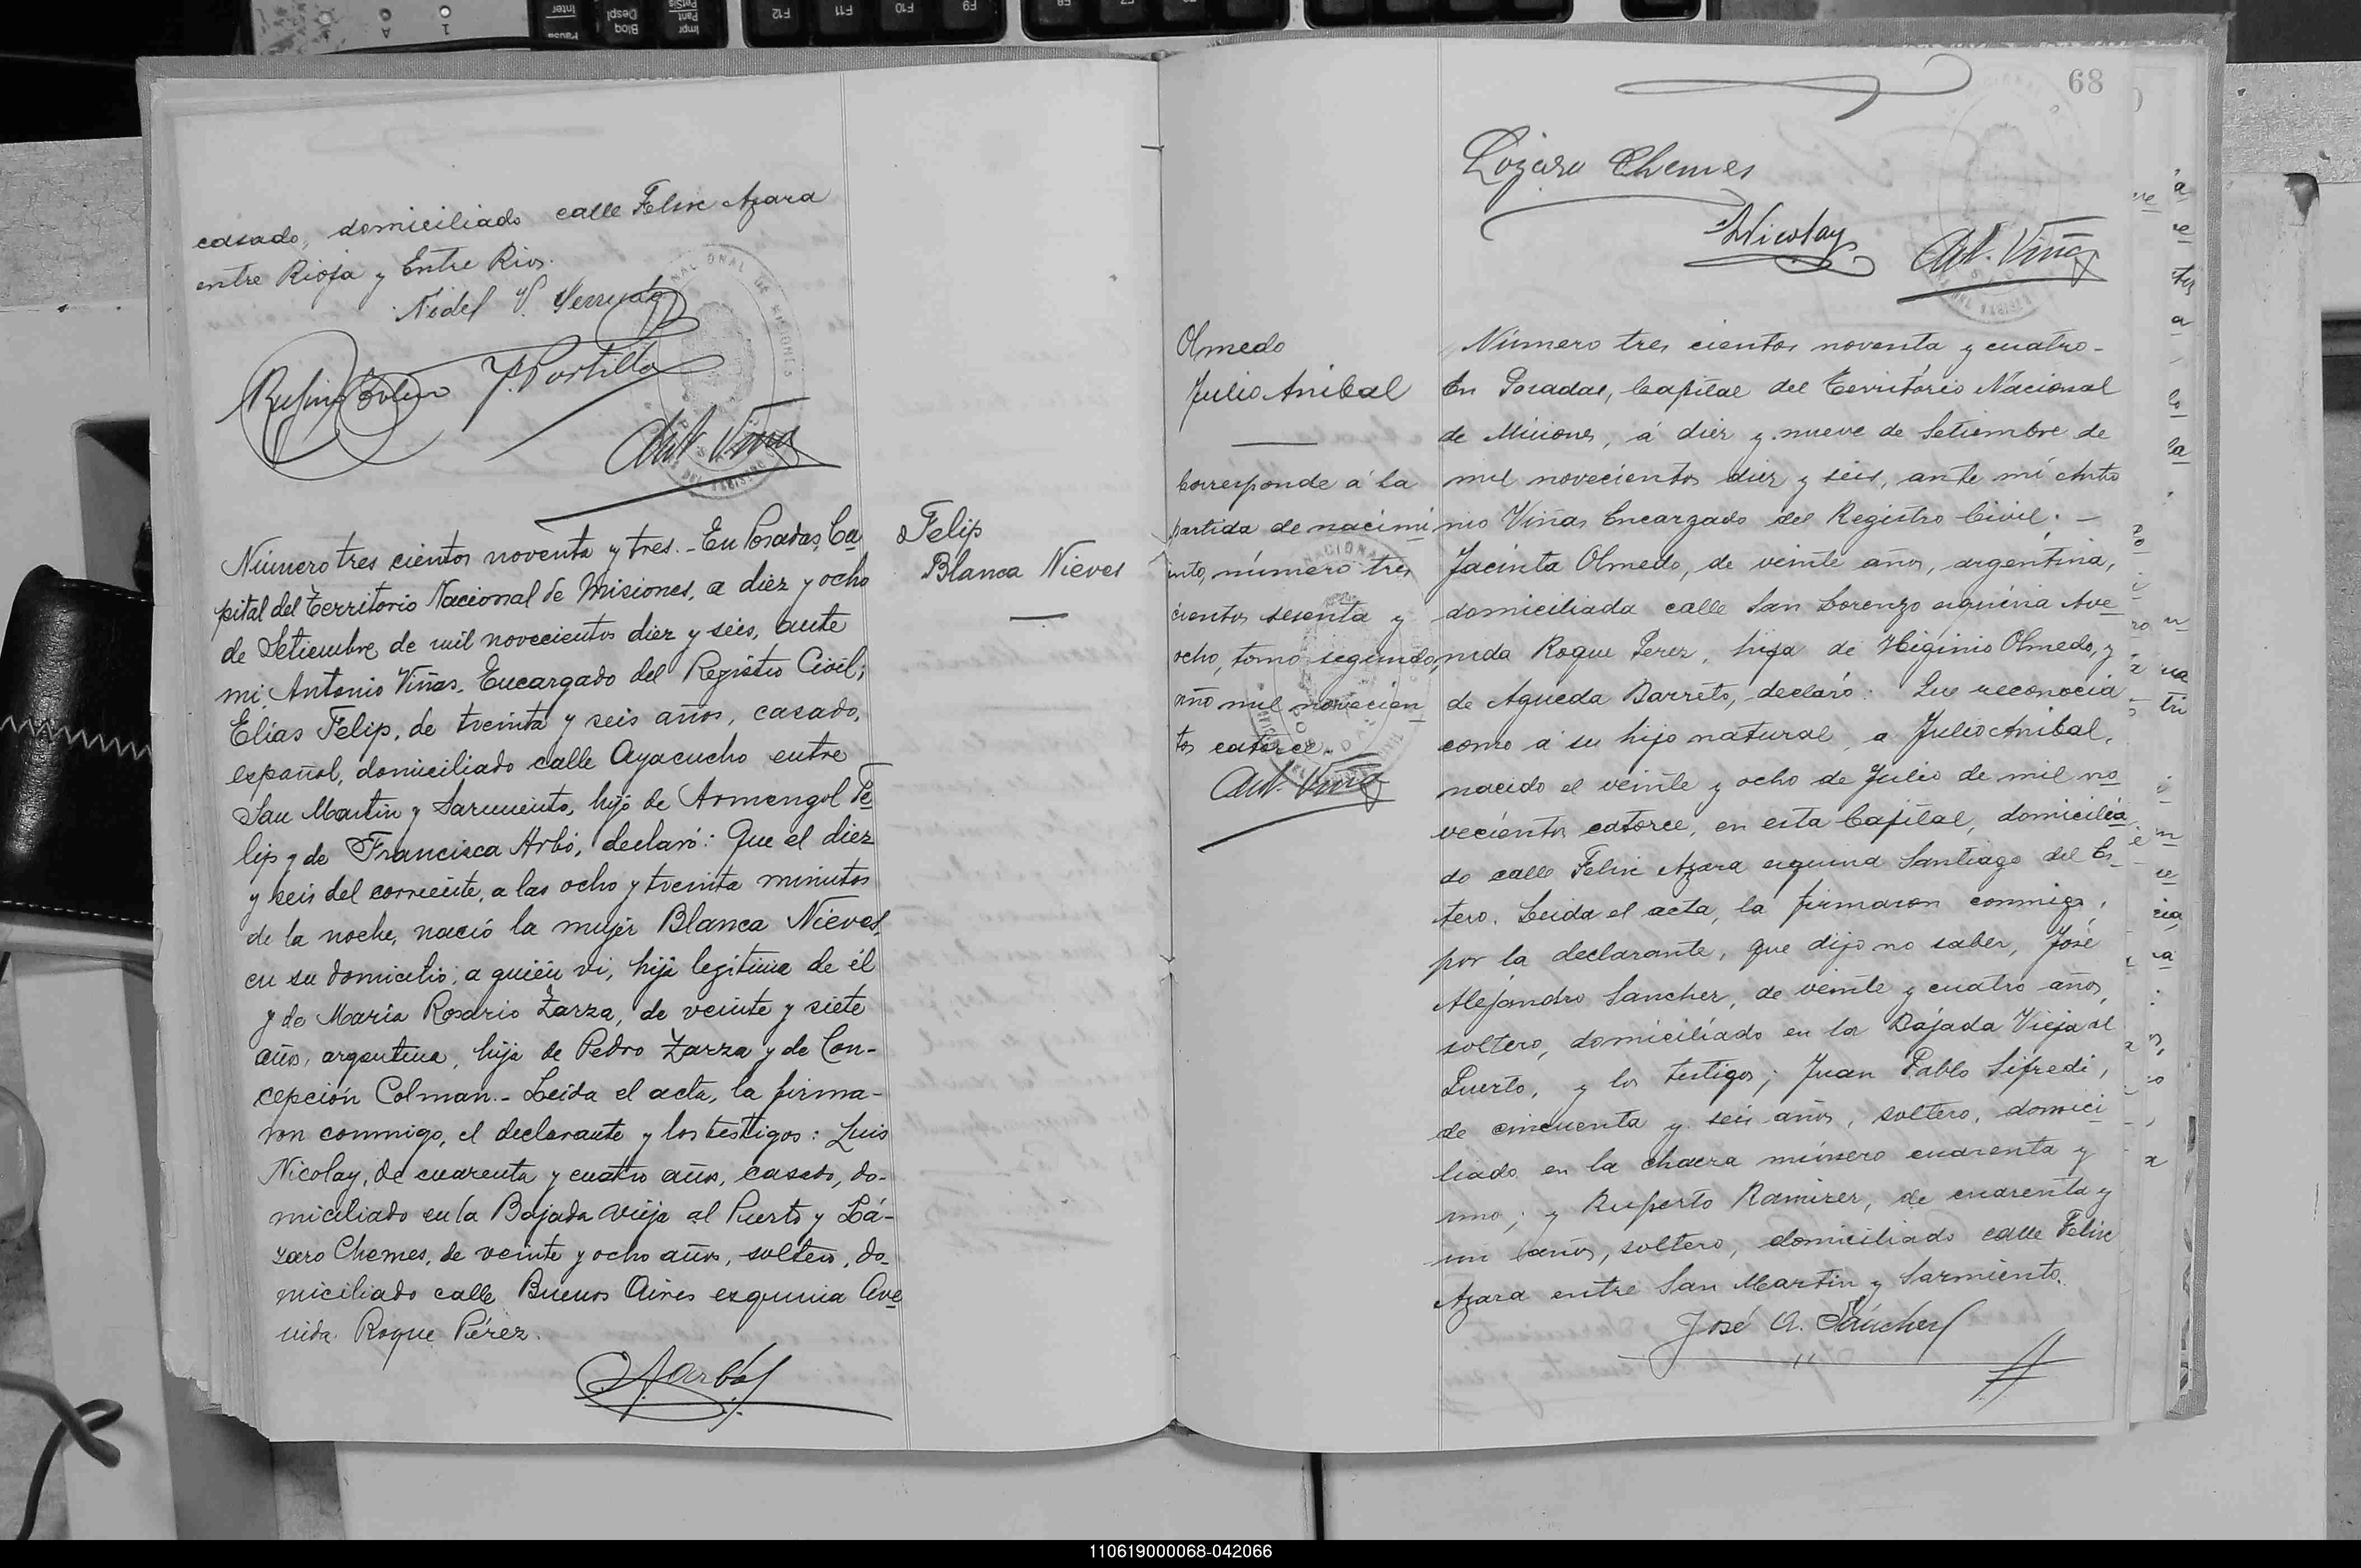 casado, domiciliado calle Felix Azara
entre Rioja y Entre Rios.
Fidel V.
Rufino J. Portillo
Ant. Viñas
Número tres cientos noventa y tres.- En Posadas, Ca
pital del Territorio Nacional de Misiones, a diez y ocho
de Setiembre de mil novecientos diez y seis, ante
mi, Antonio Viñas, Encargado del Registro Civil;
Elías Felip, de treinta y seis años, casado,
español, domiciliado calle Ayacucho entre
San Martin y Sarmiento, hijo de Armengol Fe
lip y de Francisca Arbó, declaró: Que el diez
y seis del corriente, a las ocho y treinta minutos
de la noche, nació la mujer Blanca Nieves,
en su domicilio; a quien vi, hija legitima de él
y de María Rosario Zarza, de veinte y siete
años, argentina, hija de Pedro Zarza y de Con-
cepción Colman.- Leída el acta, la firma-
ron conmigo, el declarante y los testigos: Luis
Nicolay, de cuarenta y cuatro años, casado, do-
miciliado en la Bajada vieja al Puerto y Lá-
zaro Chemes, de veinte y ocho años, soltero, do-
miciliado calle Buenos Aires esquina Ave
nida Roque Pérez.
Felip
Blanca Nieves
68
Lázaro Chemes
Nicolay
Ant. Viñas
Olmedo
Julio Anibal
Corresponde á la
partida de nacimi
ento, número tres
cientos sesenta y
ocho, tomo segundo,
año mil novecien
tos catorce.
Ant. Viñas
Número tres cientos noventa y cuatro-
En Posadas, Capital del Territorio Nacional
de Misiones, á diez y nueve de Setiembre de
mil novecientos diez y seis, ante mí Anto
nio Viñas Encargado del Registro Civil: -
Jacinta Olmedo, de veinte años, argentina,
domiciliada calle San Lorenzo esquina Ave
nida Roque Perez, hija de Higinio Olmedo, y
de Agueda Barreto, declaró: Que reconocia
como á su hijo natural, a Julio Anibal,
nacido el veinte y ocho de Julio de mil no
vecientos catorce, en esta Capital, domicilia
do calle Felix Azara esquina Santiago del Es
tero. Leida el acta, la firmaron conmigo,
por la declarante, que dijo no saber, José
Alejandro Sanchez, de veinte y cuatro años,
soltero, domiciliado en la Bajada Vieja al
Puerto, y los testigos; Juan Pablo Sifredi,
de cincuenta y seis años, soltero, domici
liado en la chacra número cuarenta y
uno; y Ruperto Ramirez, de cuarenta y
un años, soltero, domiciliado calle Felix
Azara entre San Martin y Sarmiento.
José A. Sánchez
110619000068-042066